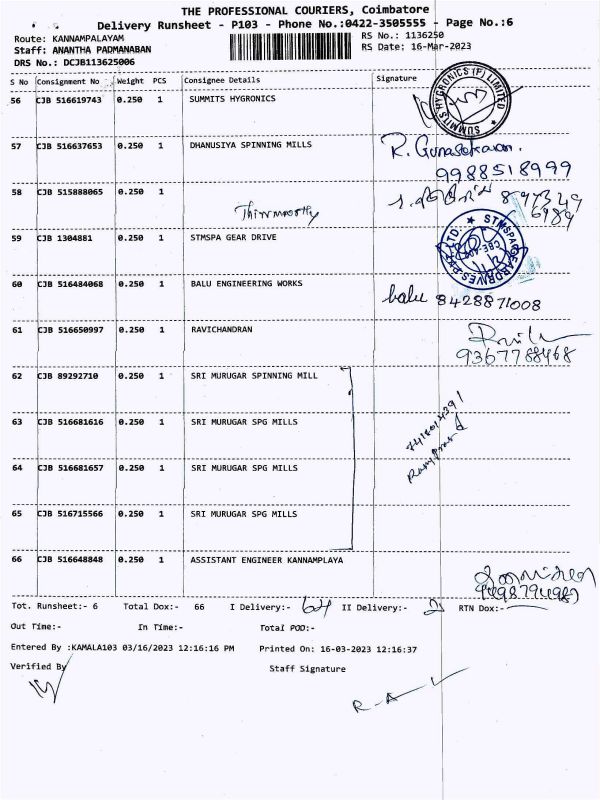 THE PROFESSIONAL COURIERS, Coimbatore
Delivery Runsheet - P103 - Phone No.:0422-3505555 - Page No.:6
Route: KANNAMPALAYAM
RS No.: 1136250
Staff: ANANTHA PADMANABAN
RS Date: 16-Mar-2023
DRS No.: DCJB113625006
S No Consignment No Weight PCS Consignee Details Signature
56 CJB 516619743 0.250 1 SUMMITS HYGRONICS
SUMMITS HYGRONICS (P) LIMITED
57 CJB 516637653 0.250 1 DHANUSIYA SPINNING MILLS R. Gunasekaran.
9988518999
58 CJB 515888065 0.250 1
59 CJB 1304881 0.250 1 STMSPA GEAR DRIVE
60 CJB 516484068 0.250 1 BALU ENGINEERING WORKS
balu 8428871008
61 CJB 516650997 0.250 1 RAVICHANDRAN
9367788468
62 CJB 89292710 0.250 1 SRI MURUGAR SPINNING MILL
63 CJB 516681616 0.250 1 SRI MURUGAR SPG MILLS
64 CJB 516681657 0.250 1 SRI MURUGAR SPG MILLS
65 CJB 516715566 0.250 1 SRI MURUGAR SPG MILLS
66 CJB 516648848 0.250 1 ASSISTANT ENGINEER KANNAMPLAYA
Tot. Runsheet:- 6 Total Dox:- 66 I Delivery:- 64 II Delivery:- 2 RTN Dox:-
Out Time:- In Time:- Total POD:-
Entered By :KAMALA103 03/16/2023 12:16:16 PM Printed On: 16-03-2023 12:16:37
Verified By Staff Signature